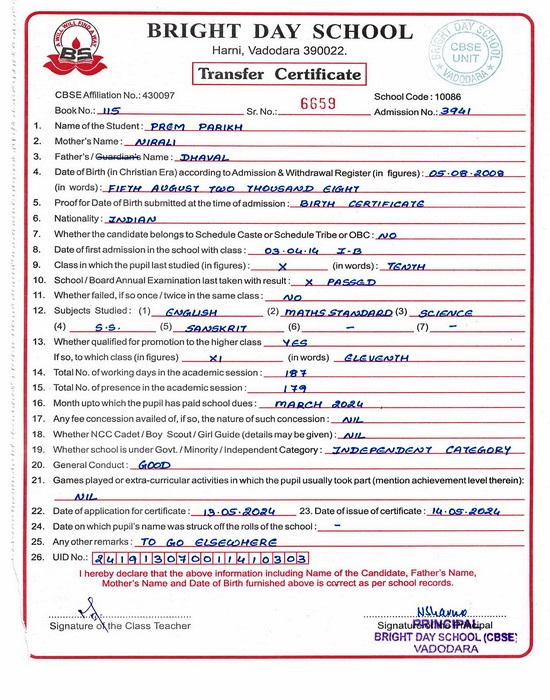 A WILL WILL FIND A WAY
BS
BRIGHT DAY SCHOOL
Harni, Vadodara 390022.
Transfer Certificate
BRIGHT DAY SCHOOL
CBSE
UNIT
★ VADODARA ★
CBSE Affiliation No.: 430097 School Code : 10086
Book No.: 115 Sr. No.: 6659 Admission No.: 3941
1. Name of the Student : PREM PARIKH
2. Mother's Name : NIRALI
3. Father's / Guardian's Name : DHAVAL
4. Date of Birth (in Christian Era) according to Admission & Withdrawal Register (in figures) : 05-08-2008
(in words) : FIFTH AUGUST TWO THOUSAND EIGHT
5. Proof for Date of Birth submitted at the time of admission : BIRTH CERTIFICATE
6. Nationality : INDIAN
7. Whether the candidate belongs to Schedule Caste or Schedule Tribe or OBC : NO
8. Date of first admission in the school with class : 03-04-14 I-B
9. Class in which the pupil last studied (in figures) : X (in words) : TENTH
10. School / Board Annual Examination last taken with result : X PASSED
11. Whether failed, if so once / twice in the same class : NO
12. Subjects Studied : (1) ENGLISH (2) MATHS STANDARD (3) SCIENCE
(4) S.S. (5) SANSKRIT (6) – (7) –
13. Whether qualified for promotion to the higher class YES
If so, to which class (in figures) XI (in words) ELEVENTH
14. Total No. of working days in the academic session : 187
15. Total No. of presence in the academic session : 179
16. Month upto which the pupil has paid school dues : MARCH 2024
17. Any fee concession availed of, if so, the nature of such concession : NIL
18. Whether NCC Cadet / Boy Scout / Girl Guide (details may be given) : NIL
19. Whether school is under Govt. / Minority / Independent Category : INDEPENDENT CATEGORY
20. General Conduct : GOOD
21. Games played or extra-curricular activities in which the pupil usually took part (mention achievement level therein):
NIL
22. Date of application for certificate : 13-05-2024 23. Date of issue of certificate : 14-05-2024
24. Date on which pupil's name was struck off the rolls of the school : –
25. Any other remarks : TO GO ELSEWHERE
26. UID No.: 241913070011410303
I hereby declare that the above information including Name of the Candidate, Father's Name,
Mother's Name and Date of Birth furnished above is correct as per school records.
Signature of the Class Teacher Signature of the Principal
PRINCIPAL
BRIGHT DAY SCHOOL (CBSE)
VADODARA